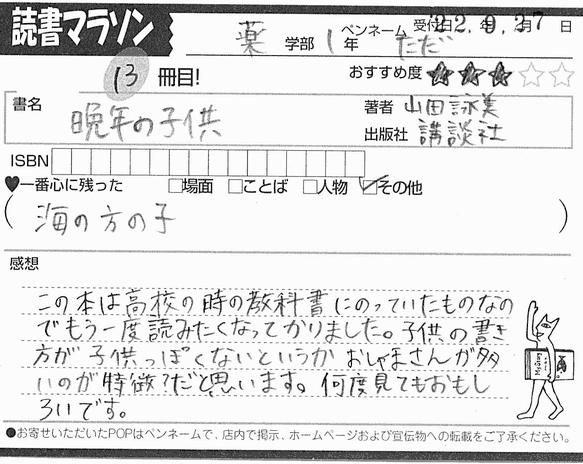 読書マラソン
薬 学部 1 年 ペンネーム ただ 受付日 22. 9. 27 日
13 冊目! おすすめ度 ★★★☆☆
書名 晩年の子供
著者 山田詠美
出版社 講談社
ISBN
♥一番心に残った □場面 □ことば □人物 ☑その他
( 海の方の子 )
感想
この本は高校の時の教科書にのっていたものなの
でもう一度読みたくなってかりました。子供の書き
方が子供っぽくないというかおしゃまさんが多
いのが特徴?だと思います。何度見てもおもし
ろいです。
●お寄せいただいたPOPはペンネームで、店内で掲示、ホームページおよび宣伝物への転載をご了承ください。